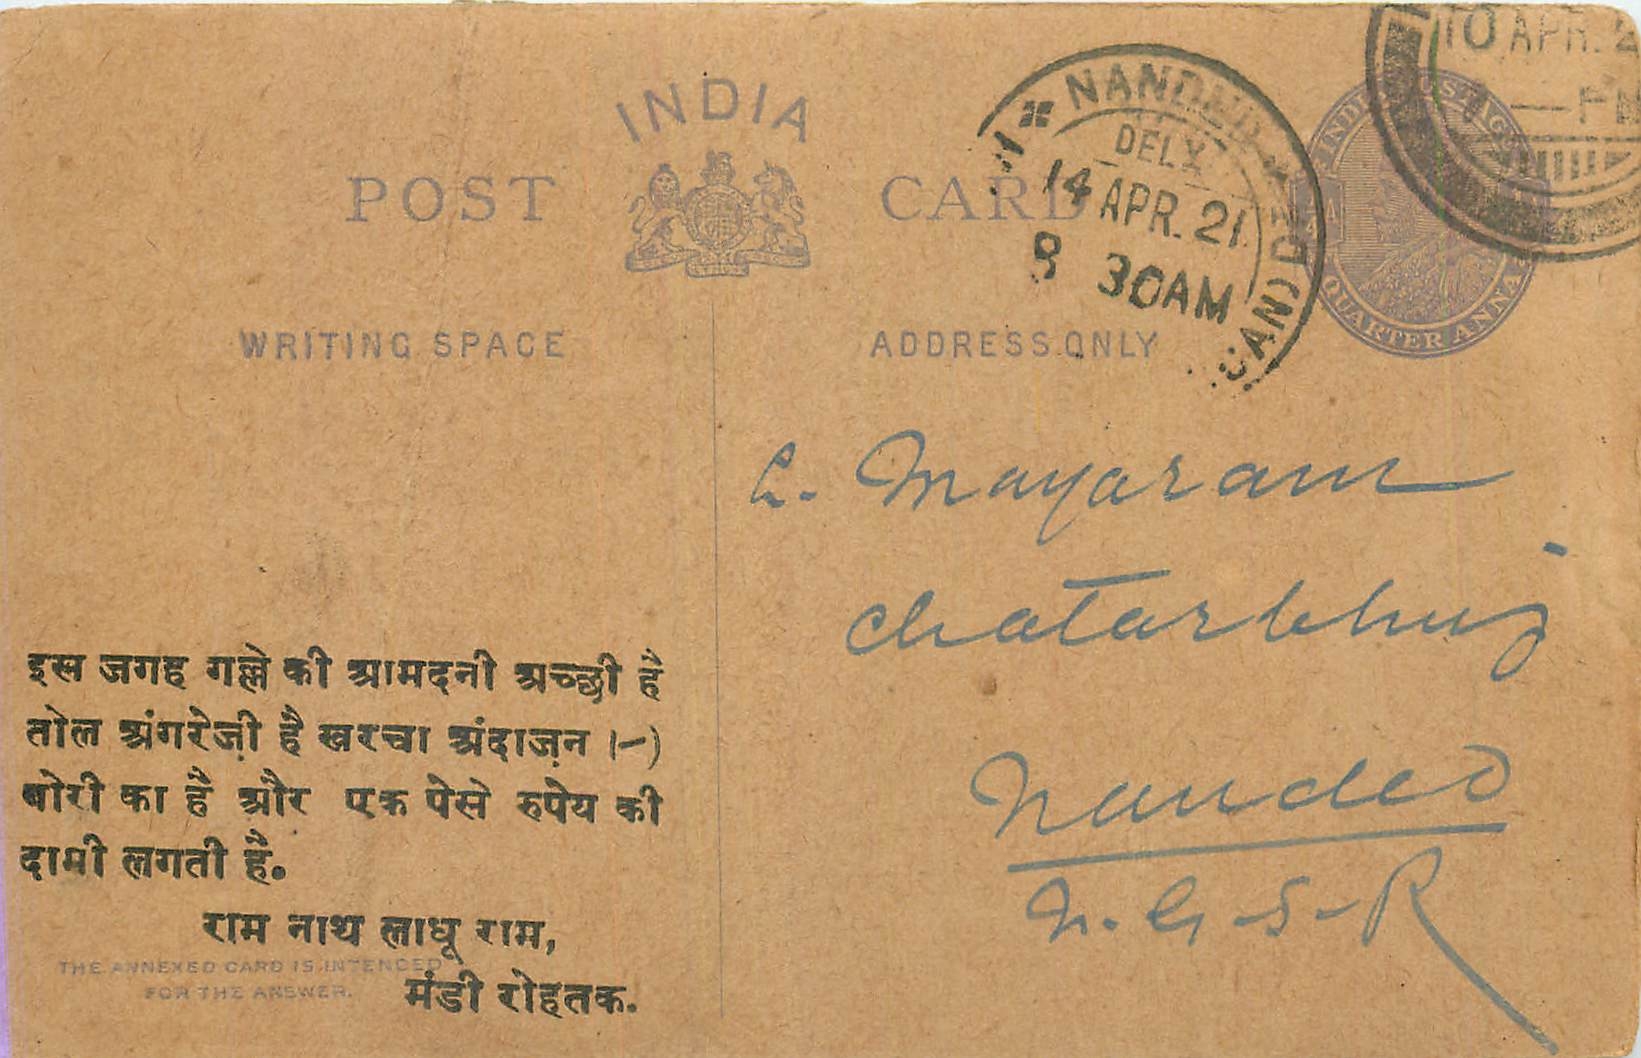 INDIA
POST CARD
WRITING SPACE
ADDRESS ONLY
NANDER
DELY
14 APR. 21
8 30AM
10 APR. 2
QUARTER ANNA
L. Mayaram
Chatarbhuj
Nander
N. G. S. R
इस जगह गल्ले की आमदनी अच्छी है
तोल अंगरेज़ी है खरचा अंदाज़न ।-)
बोरी का है और एक पेसे रुपेय की
दामी लगती है.
राम नाथ लाधू राम,
मंडी रोहतक.
THE ANNEXED CARD IS INTENDED
FOR THE ANSWER.